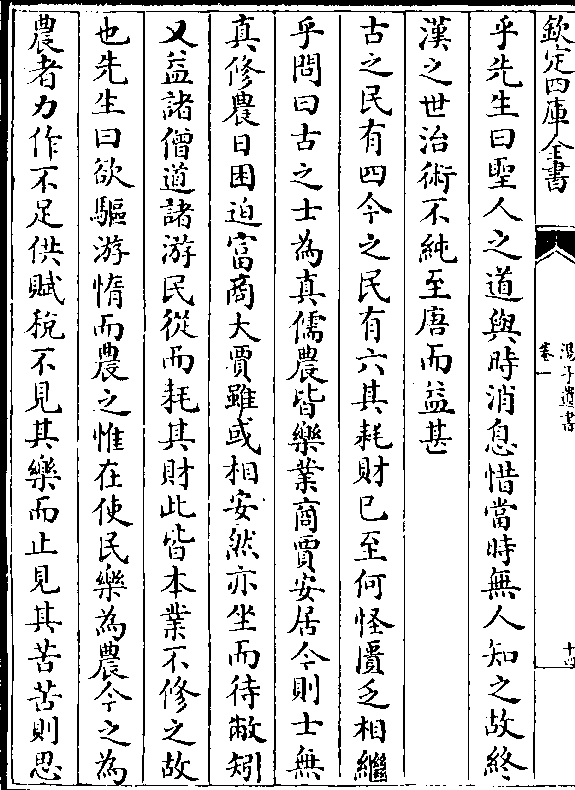 欽定四庫全書
湯子遺書
卷一
十四
乎先生曰聖人之道與時消息惜當時無人知之故終
漢之世治術不純至唐而益甚
古之民有四今之民有六其耗財已至何怪匱乏相繼
乎問曰古之士為真儒農皆樂業商賈安居今則士無
真修農日困迫富商大賈雖或相安然亦坐而待敝矧
又益諸僧道諸游民從而耗其財此皆本業不修之故
也先生曰欲驅游惰而農之惟在使民樂為農今之為
農者力作不足供賦稅不見其樂而止見其苦苦則思